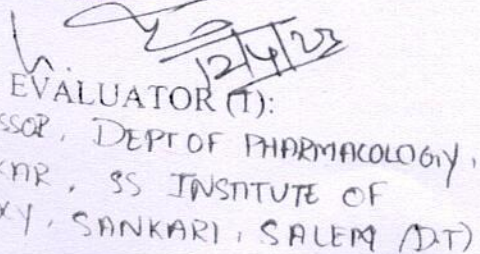 12/4/23
EVALUATOR (I):
SSOR, DEPT OF PHARMACOLOGY,
KAR, SS INSTITUTE OF
CY, SANKARI, SALEM (DT)